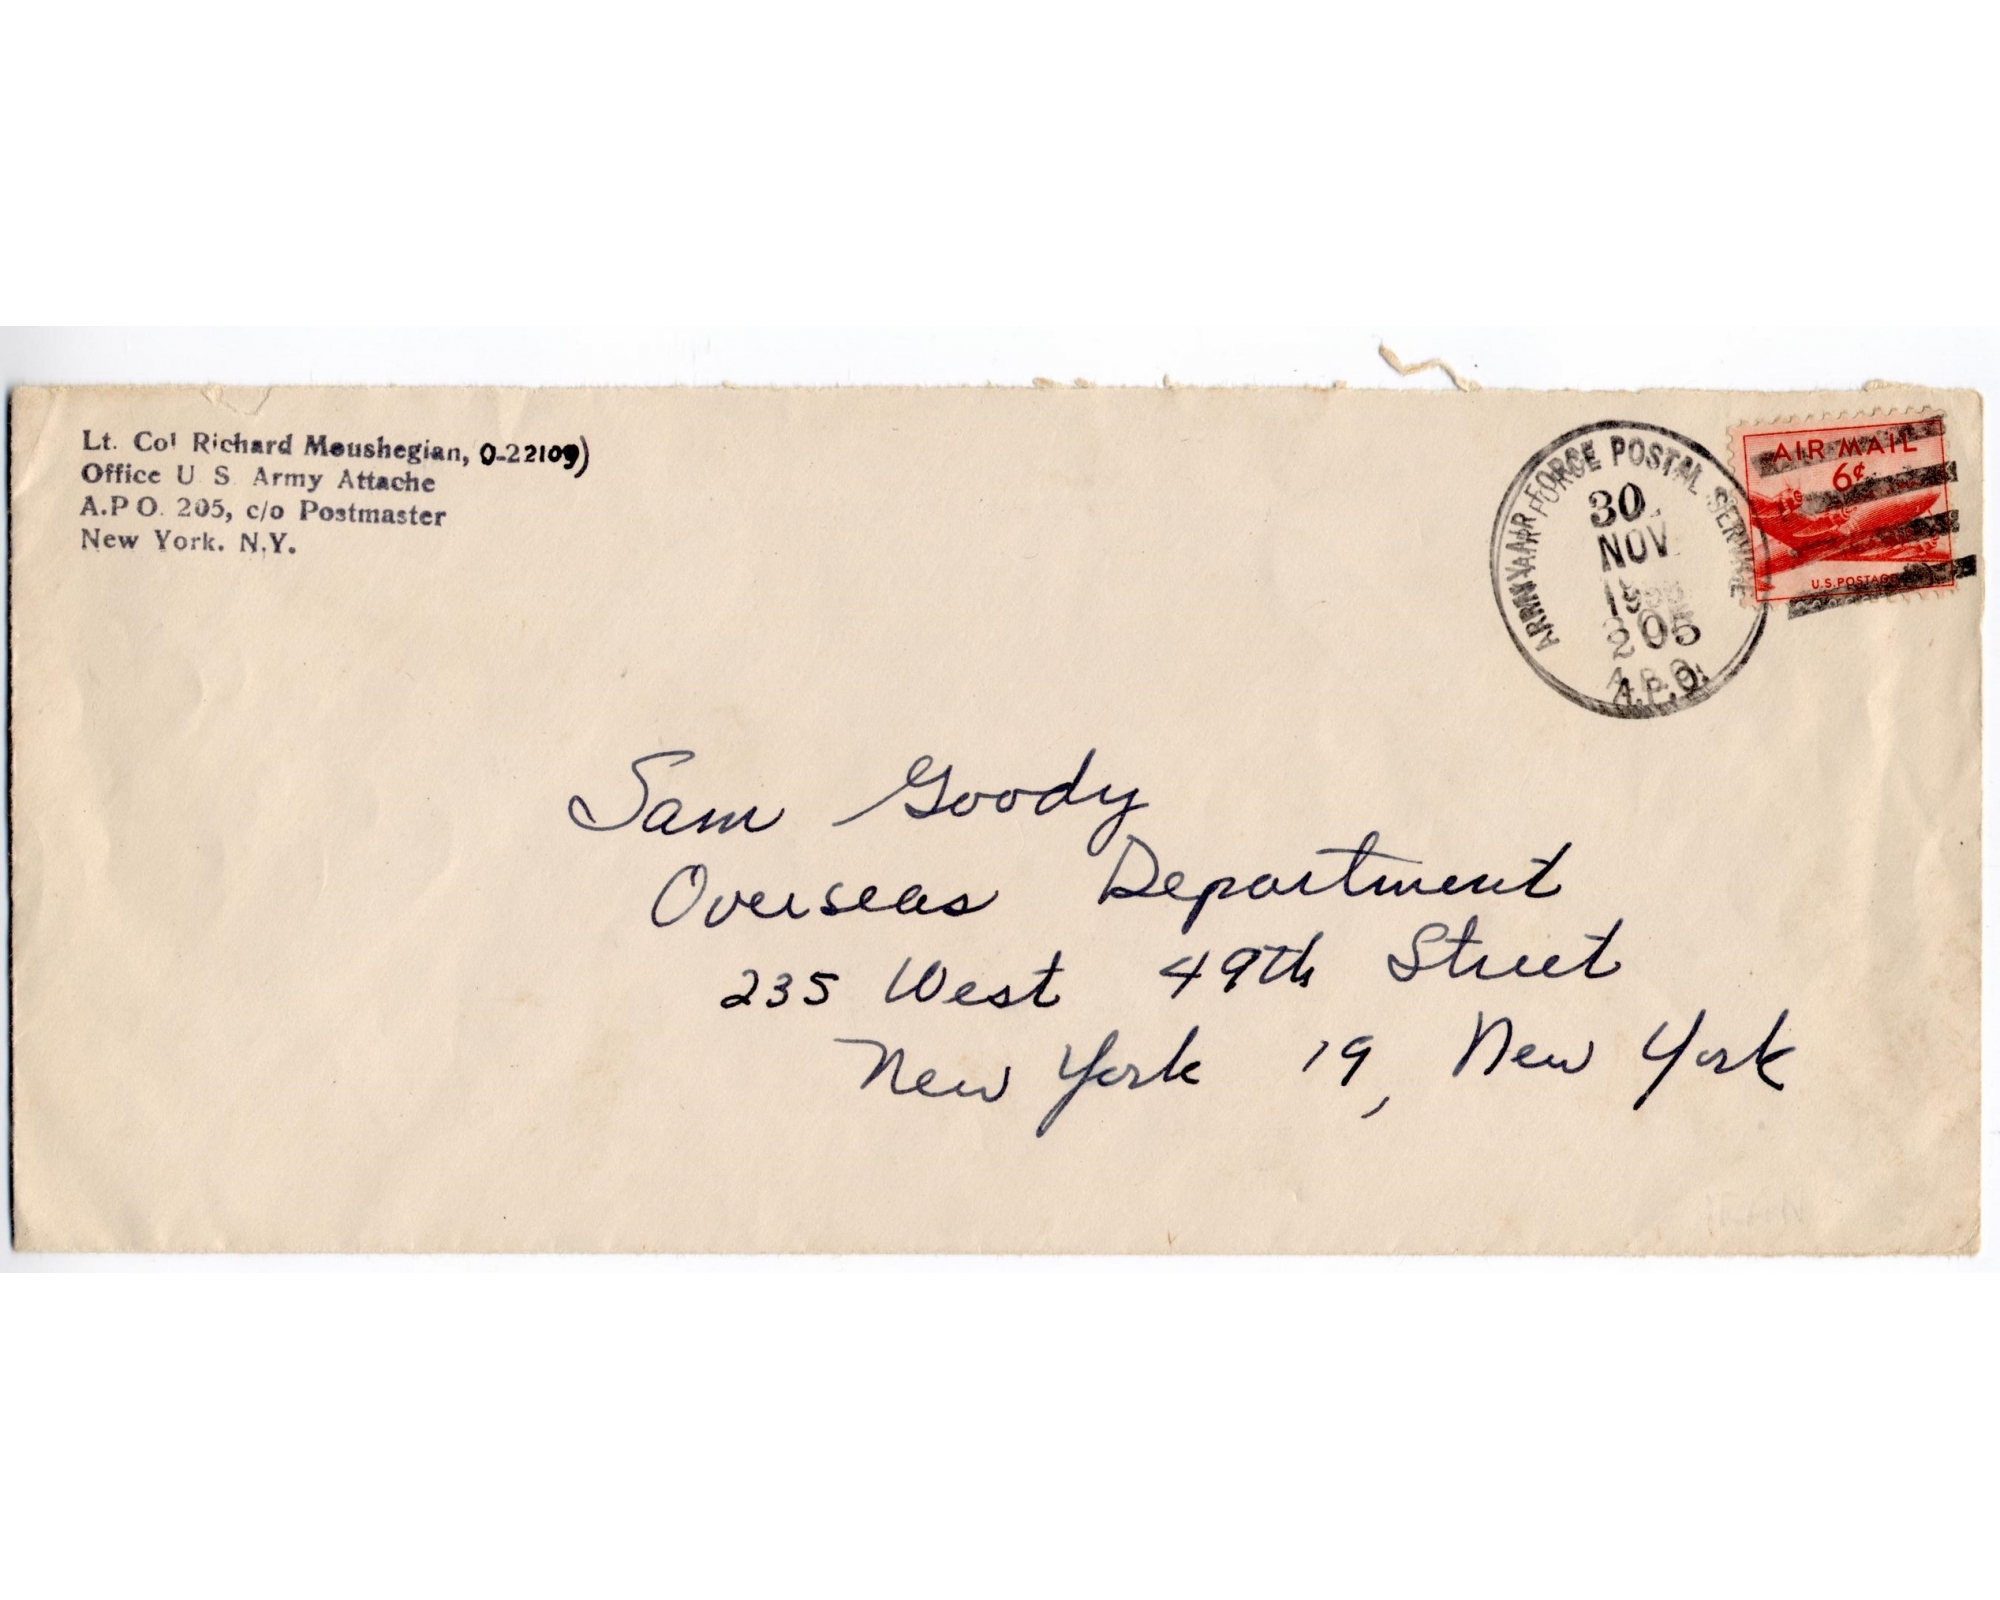 Lt. Col Richard Moushegian, O-22109)
Office U S. Army Attache
A.P O. 205, c/o Postmaster
New York. N.Y.
ARMY AIR FORCE POSTAL SERVICE
30
NOV
205
A.P.O.
AIR MAIL
6¢
U.S. POSTAGE
Sam Goody
Overseas Department
235 West 49th Street
New York 19, New York